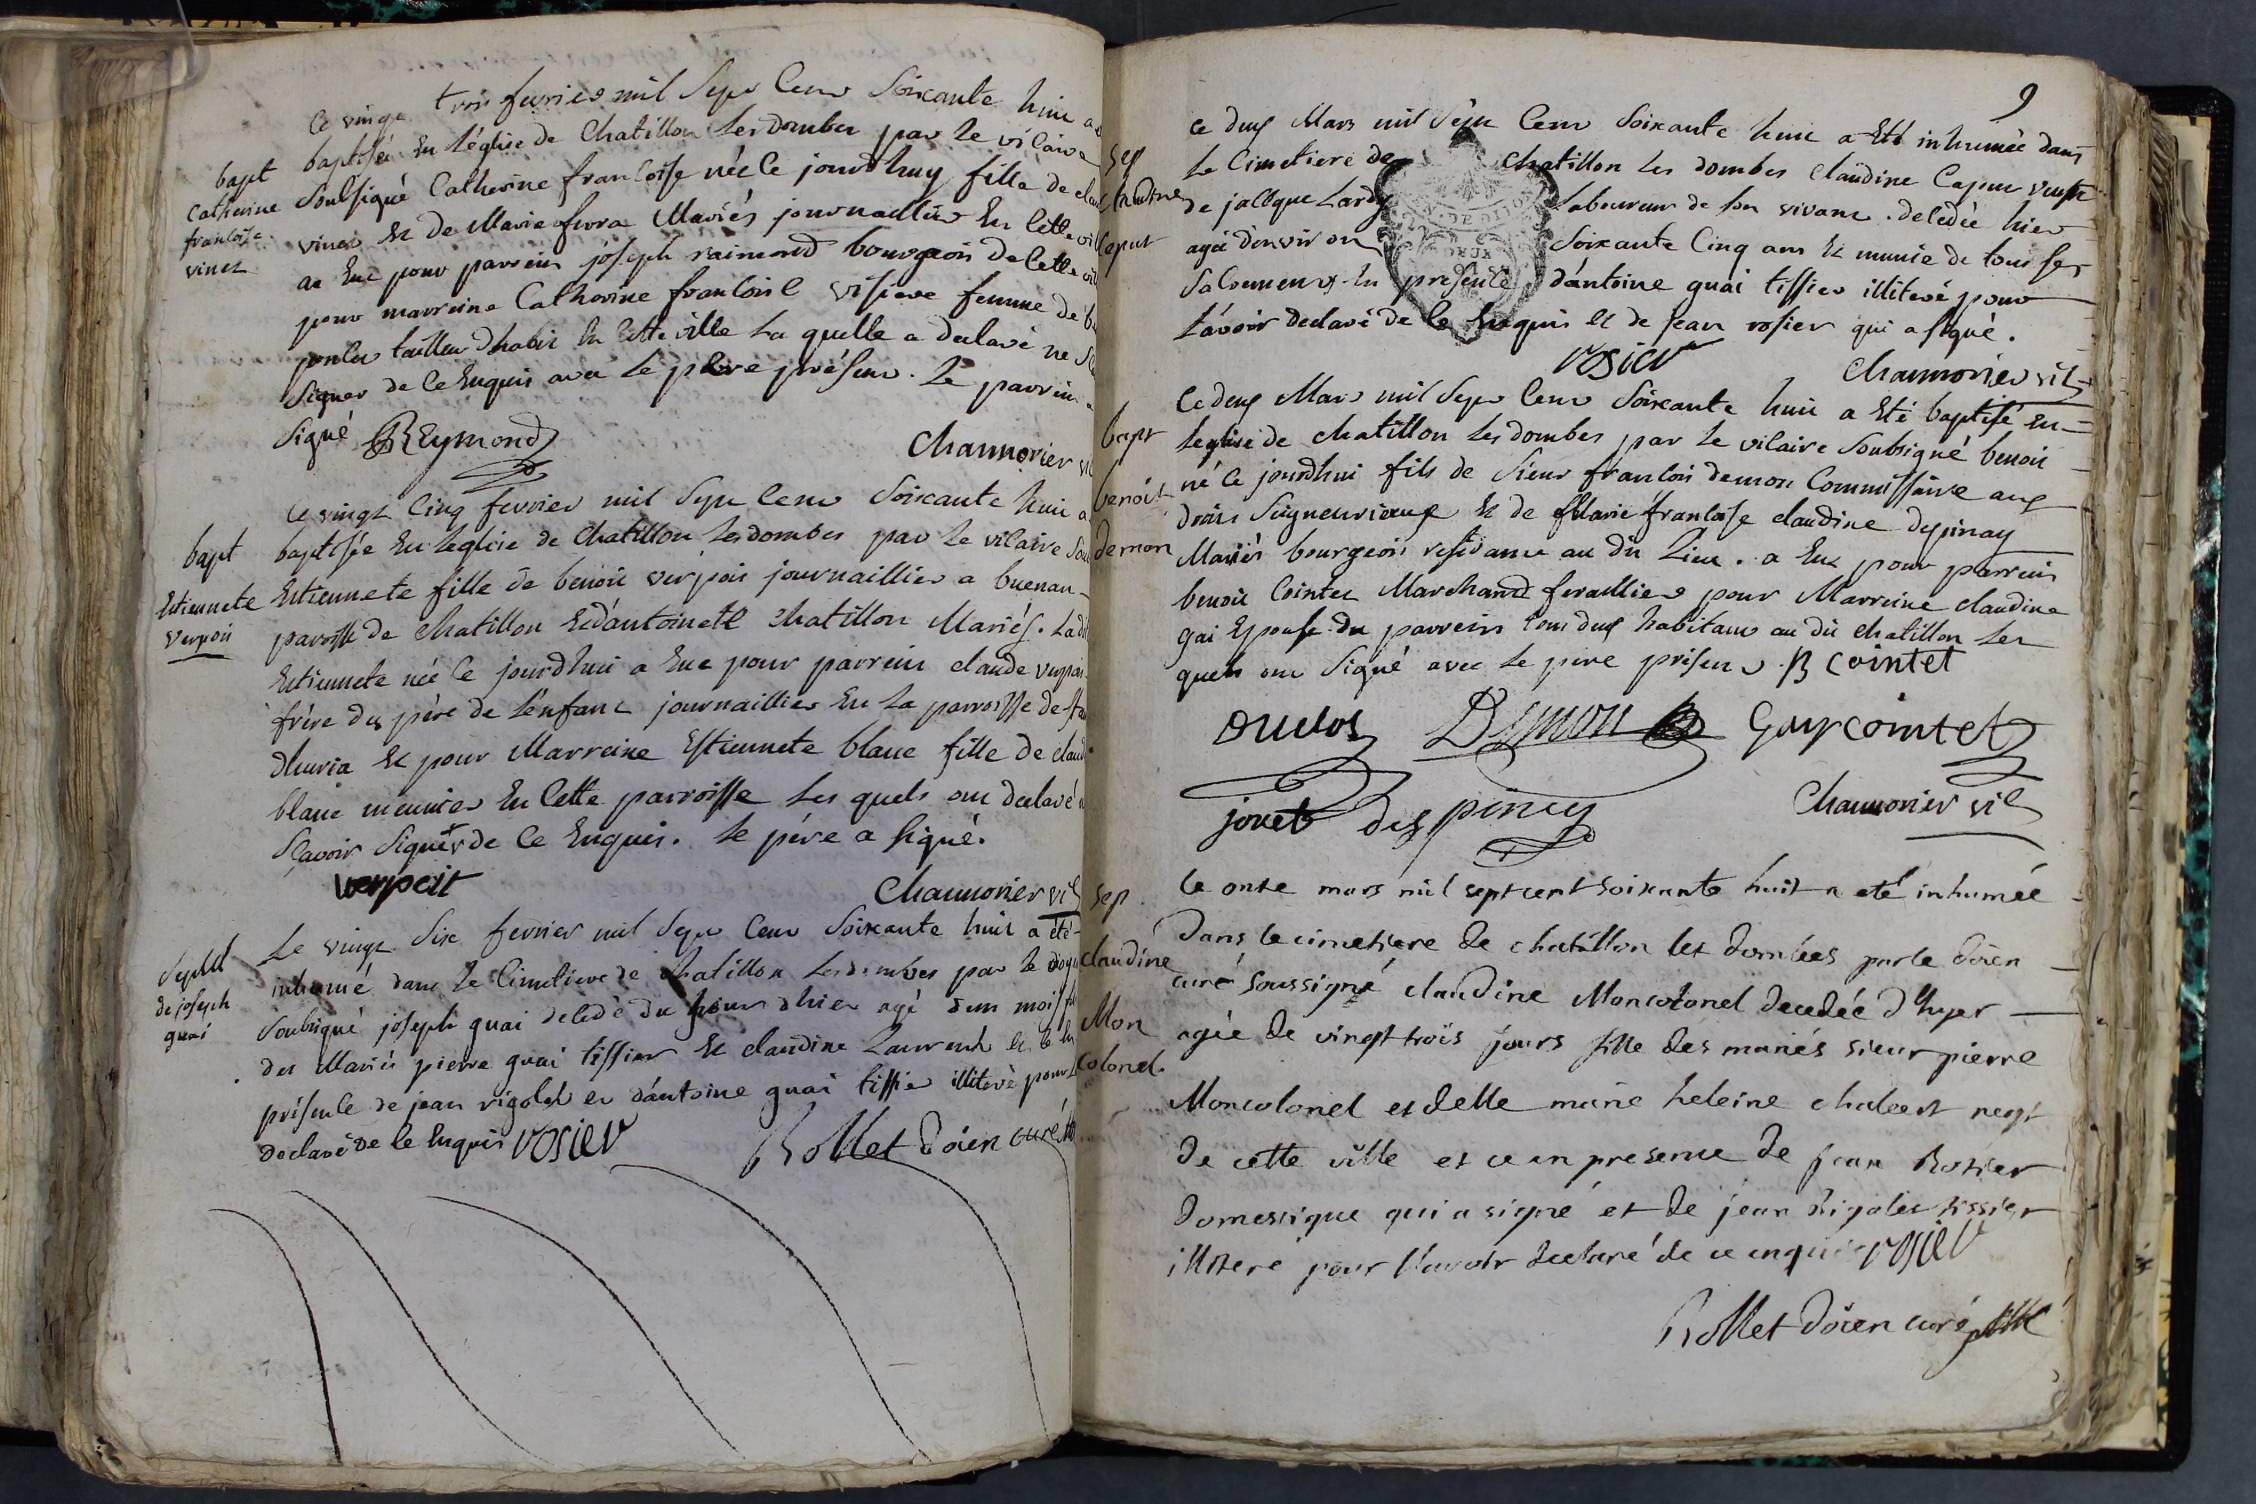 ce vingt trois fevrier mil sept cent soixante huit a
bapt
baptisée en l'église de Chatillon les dombes par le vicaire
catherine
francoise
vinet
soussigné Catherine francoise née ce jourdhuy fille de clau
vinet et de Marie Mariés journaillier en cette vil
a eut pour parrein joseph raimond bourgeois de cette vil
pour marreine Catherine francoise femme de
tailleur dhabit en cette ville la quelle a declaré ne
signer de ce enquis avec le père présent. Le parrein a
signé REymond
Chaunorier vic
bapt
Estiennete
verpoi
ce vingt cinq fevrier mil sept cent soixante huit a
baptisée en leglise de Chatillon les dombes par le vicaire sou
Estiennete fille de benoit verpois journaillier a buenan
paroisse de chatillon et d'antoinete chatillon Mariés. Ladi
Estiennete née ce jourdhui a eut pour parrein claude verpoi
frère du père de l'enfant journaillier en la parroisse de
et pour Marreine Estiennete blanc fille de claud
blanc meunier en cette parroisse les quels ont declaré
sçavoir signer de ce enquis. le père a signé.
verpoit
Chaunorier vic
sepult
de joseph
quai
Le vingt six fevrier mil sept cent soixante huit a été
inhumé dans le Cimetiere de chatillon les dombes par le doye
soubsigné joseph quai decedé du jour dhier agé d'un mois
des Mariés pierre quai tissier et claudine Laurent et ce en
présence de jean rigolet et d'antoine quai tissier illiteré pour
declaré de ce enquis rosier
Rollet doien curé
9
sep
claudine
caput
ce deux Mars mil sept cent soixante huit a eté inhumée dans
le Cimetiere de chatillon les dombes claudine Caput veuve
de jacque Lardy laboureur de son vivant. decedée hier
agée d'environ soixante cinq ans et munie de tous ses
sacremens en presence d'antoine quai tissier illiteré pour
l'avoir declaré de ce enquis et de jean rosier qui a signé.
DEUX
rosier
Chaunorier vic
bapt
benoit
demon
Ce deux Mars mil sept cent soixante huit a eté baptisé en
leglise de chatillon les dombes par le vicaire soubsigné benoit
né ce jourdhui fils de sieur francois demon Commissaire aux
droits seigneuriaux et de Marie francoise claudine depinay
Mariés bourgeois residants au dit Lieu. a eut pour parrein
benoit Cointet Marchand feraillier pour Marreine claudine
gai epouse du parrein tous deux habitans au dit chatillon les
quels ont signé avec le père présent. B cointet
Duclos Demon Guy cointet
jouet despiney
Chaunorier vic
sep.
claudine
Mon
colonel.
le onze mars mil sept cent soixante huit a eté inhumée
dans le cimetiere de chatillon les dombes par le doien
curé soussigné claudine Moncolonel decedée d'hyer
agée de vingt trois jours fille des mariés sieur pierre
Moncolonel et delle marie heleine negt
de cette ville et ce en presence de jean Rosier
domestique qui a signé et de jean Rigolet tissier
illiteré pour l'avoir declaré de ce enquis rosier
Rollet doien curé